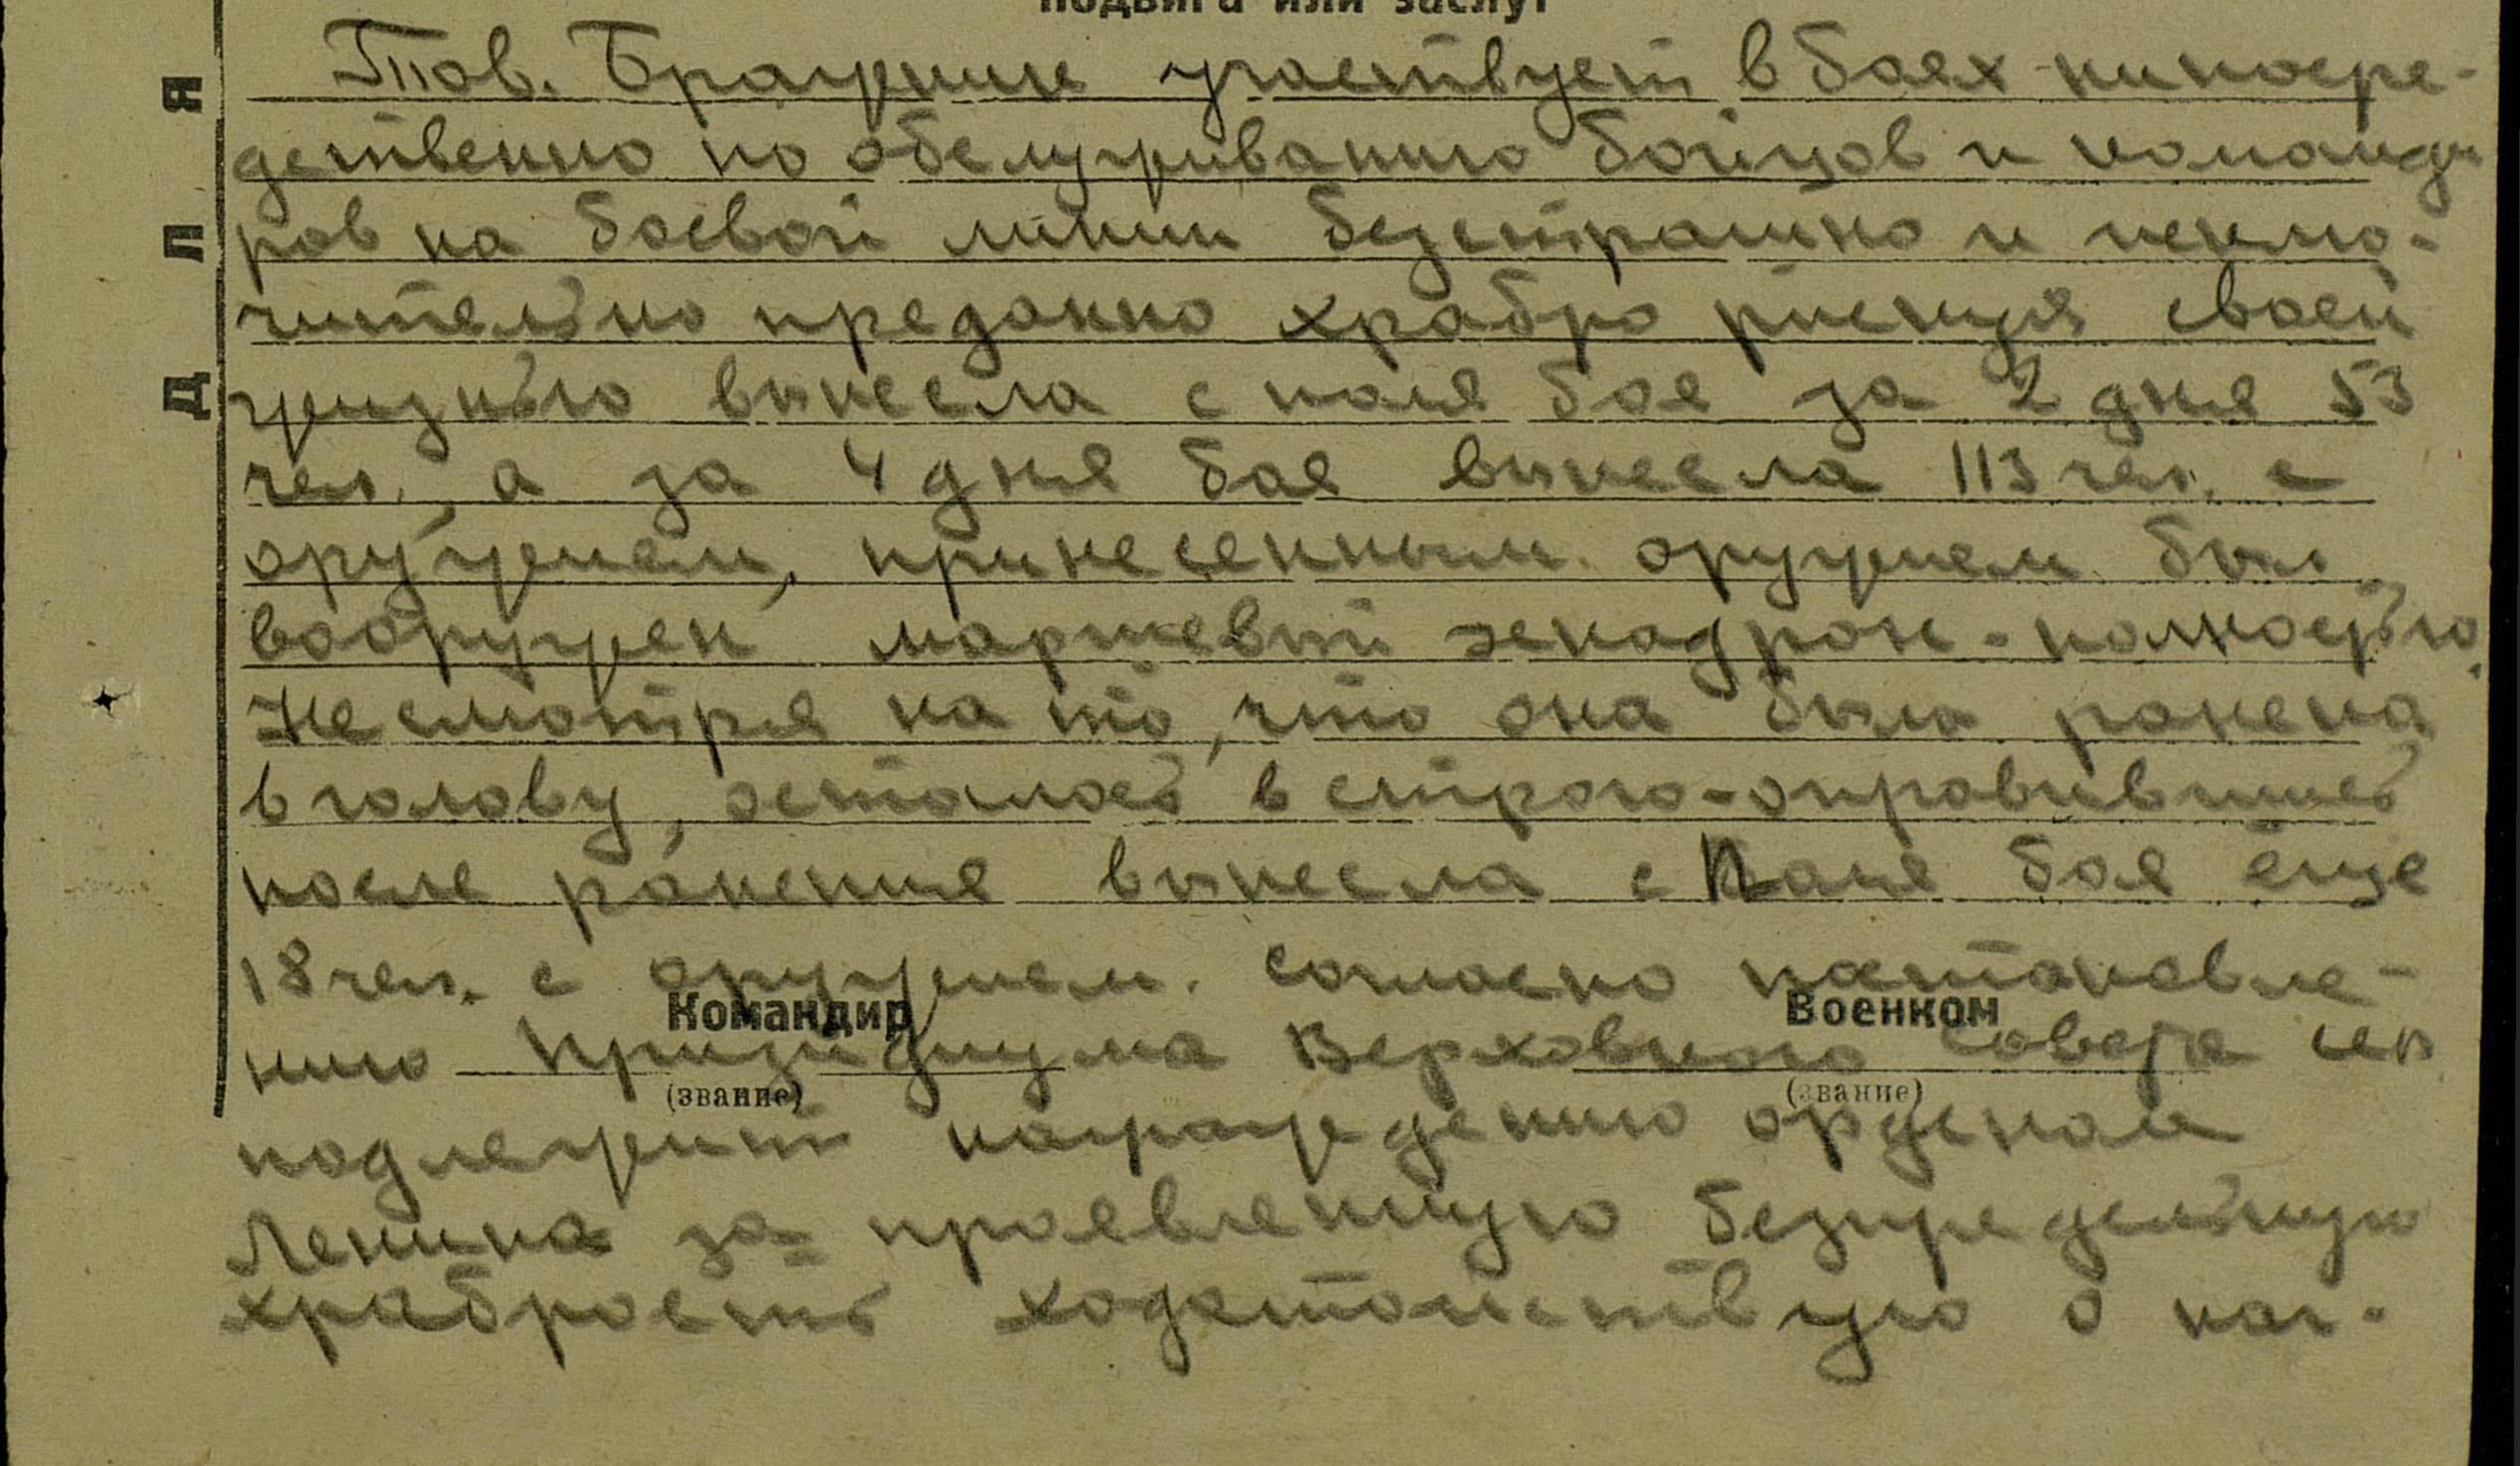 подвига или заслуг
Тов. Бражник участвует в боях нипосре-
дственно по обслуживанию бойцов и команди
ров на боевой линии безстрашно и исклю-
чительно преданно храбро рискуя своей
жизнью вынесла с поля боя за 2 дня 53
чел., а за 4 дня боя вынесла 113 чел. с
оружием, принесенным оружием был
вооружен маршевый эскадрон - полностью.
Не смотря на то, что она была ранена
в голову, осталось в строю - оправившись
после ранения вынесла с поля боя еще
18 чел. с оружием. Согласно постановле-
Командир Военком
нию Призидиума Верховного Совета
(звание) (звание)
подлежит награждению орденом
Ленина за проявленную безпредельную
храбрость ходотойствую о наг-
Д Л Я